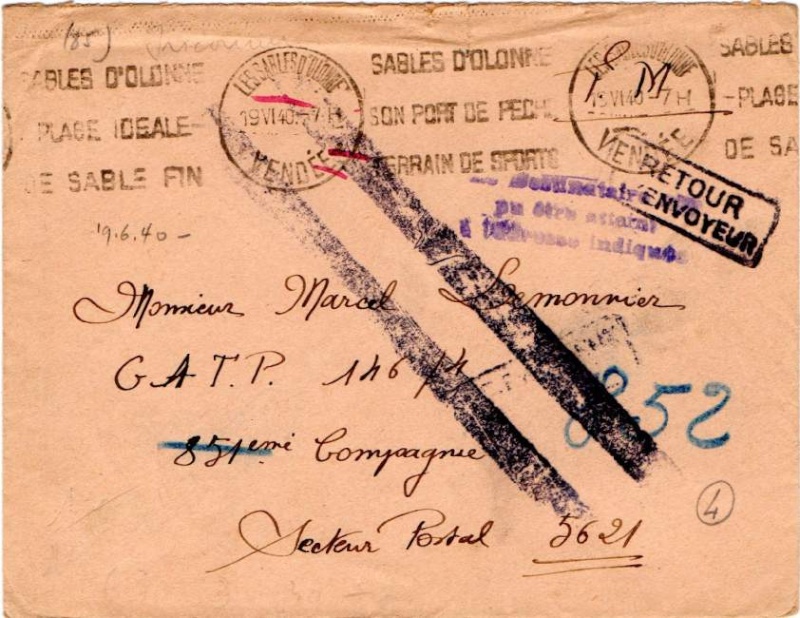 SABLES D'OLONNE
PLAGE IDEALE
DE SABLE FIN
LES SABLES D'OLONNE
19 VI 40 - 7 H
VENDÉE
SABLES D'OLONNE
SON PORT DE PECHE
TERRAIN DE SPORTS
F M
19 VI 40 - 7 H
SABLES
- PLAGE
DE SA
RETOUR
ENVOYEUR
Le Destinataire
pu être atteint
à l'adresse indiquée
19.6.40 -
Monsieur Marcel Lemonnier
G A T. P. 146/4
851eme Compagnie
852
Secteur Postal 5621
4